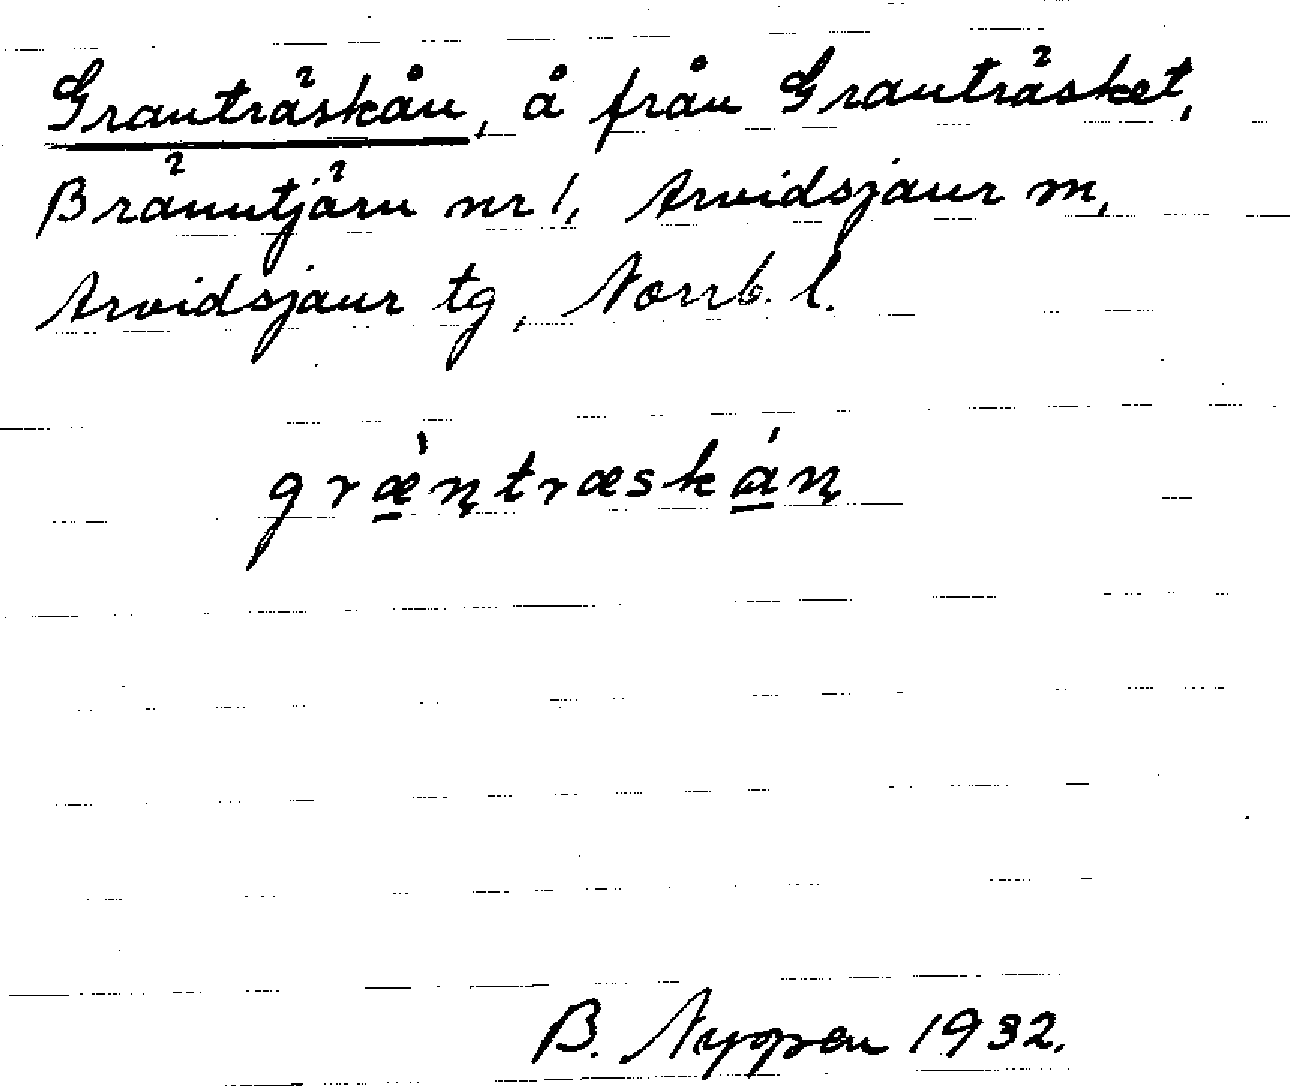 Granträskån, å från Granträsket,
Bränntjärn nr 1, Arvidsjaur m,
Arvidsjaur tg, Norrb. l.
græ̀ntræskán
B. Nyopen 1932.